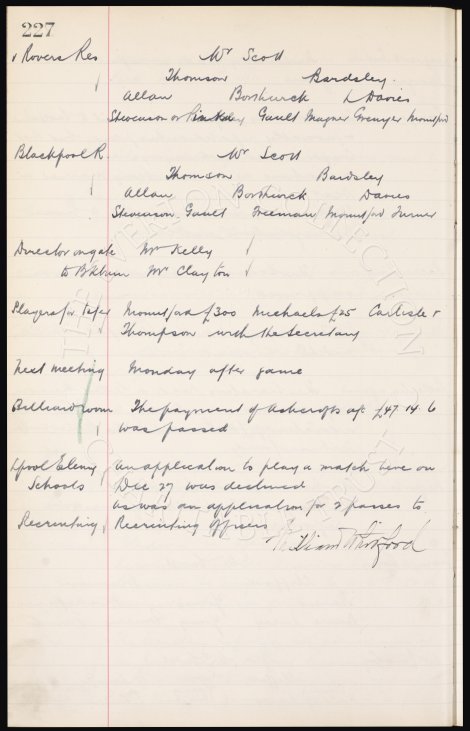 227
v Rovers Res Mr Scott
Thomson Bardsley.
Allan Borthwick L Davies
Stevenson or Gault Wagner Grenyer Mountford
Blackpool R. Mr Scott
Thomson Bardsley
Allan Borthwick Davies
Stevenson Gault Freeman Mountford Turner
Director on gate Mr Kelly
to B'kburn Mr Clayton
Players for tsfer Mountford £300 Michaels £25 Carlisle &
Thompson with the Secretary
Next meeting Monday after game
Billiard room The payment of Ashcrofts a/c £47 14 6
was passed
L'pool Elemy An application to play a match here on
Schools Dec 27 was declined
as was an application for 2 passes to
Recruiting Recruiting Officers
THE EVERTON COLLECTION